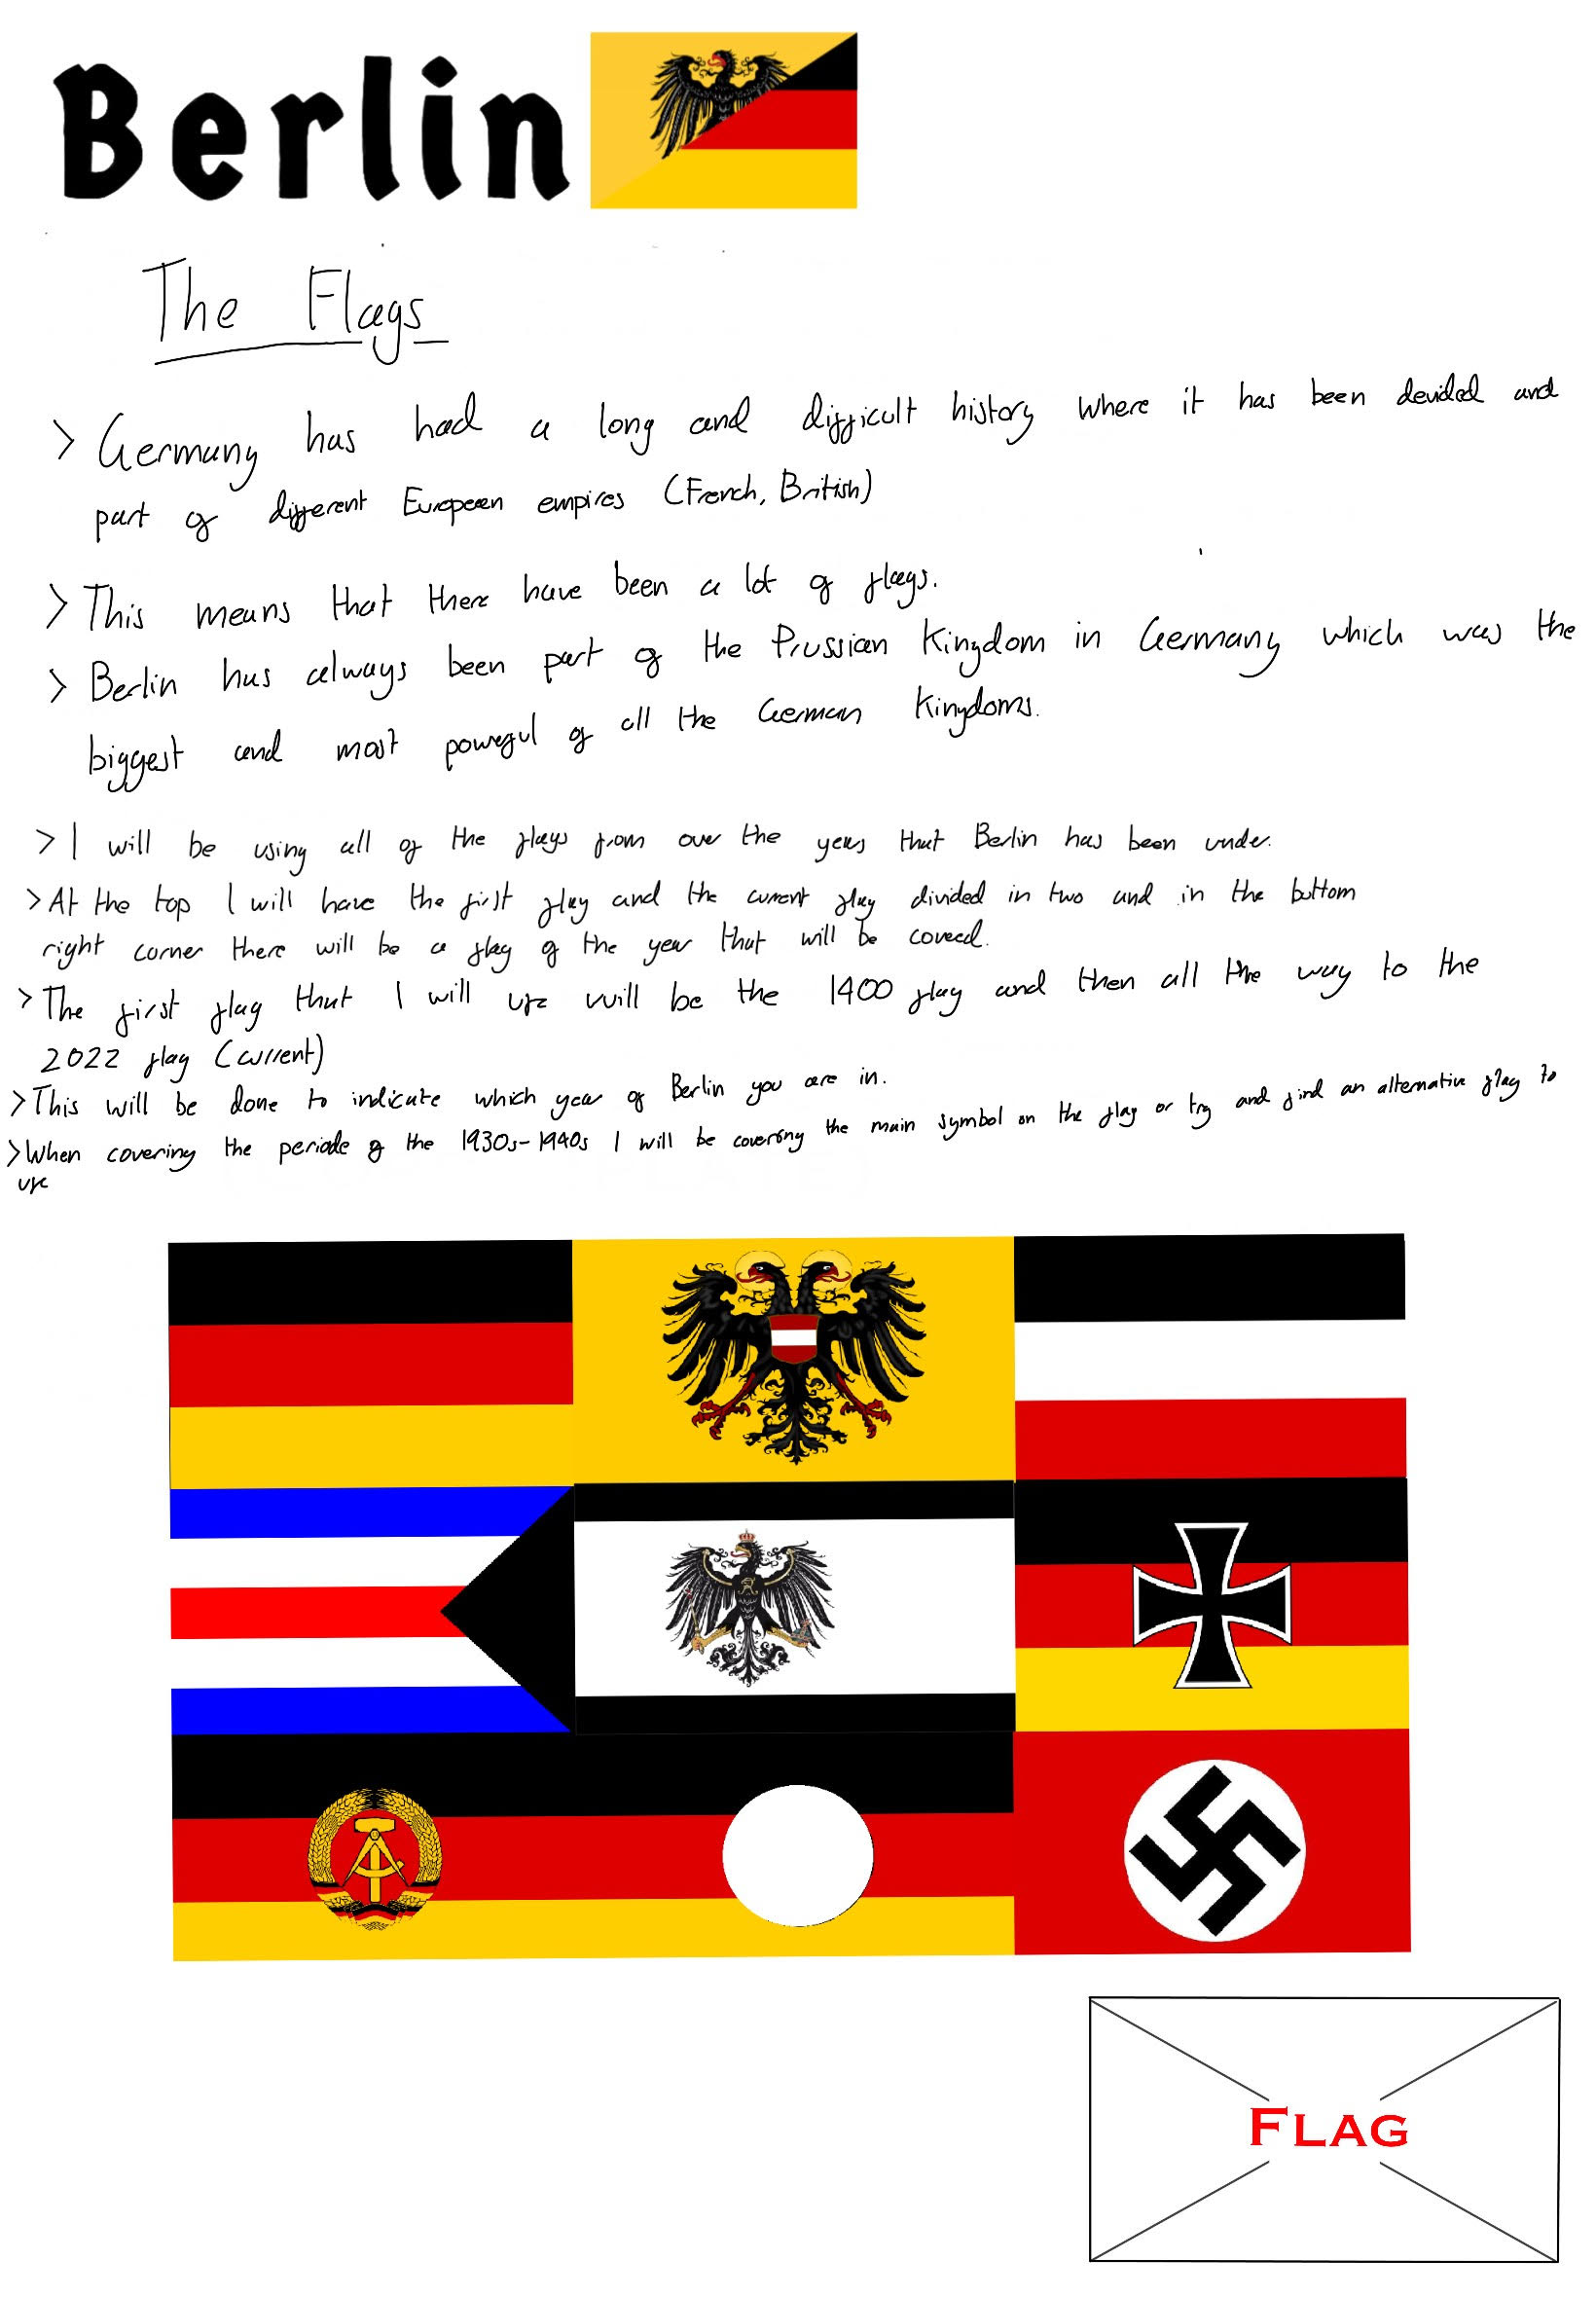 Berlin
The Flags
> Germany has had a long and difficult history where it has been devided and
part of different European empires (French, British)
> This means that there have been a lot of flags.
> Berlin has always been part of the Prussian Kingdom in Germany which was the
biggest and most powerful of all the German Kingdoms.
> I will be using all of the flags from over the years that Berlin has been under.
> At the top I will have the first flag and the current flag divided in two and in the bottom
right corner there will be a flag of the year that will be covered.
> The first flag that I will use will be the 1400 flag and then all the way to the
2022 flag (current)
> This will be done to indicate which year of Berlin you are in.
> When covering the periode of the 1930s-1940s I will be covering the main symbol on the flag or try and find an alternative flag to
use
FLAG